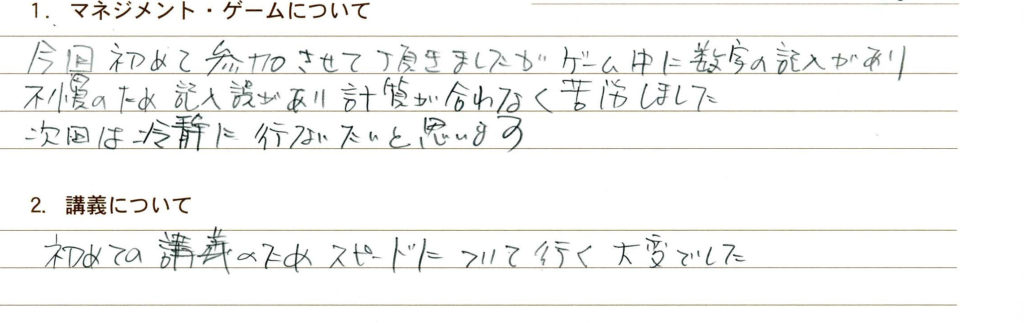 1. マネジメント・ゲームについて
今回初めて参加させて頂きましたがゲーム中に数字の記入があり
不慣のため記入誤があり計算が合わなく苦労しました
次回は冷静に行ないたいと思います
2. 講義について
初めての講義のためスピードについて行く大変でした